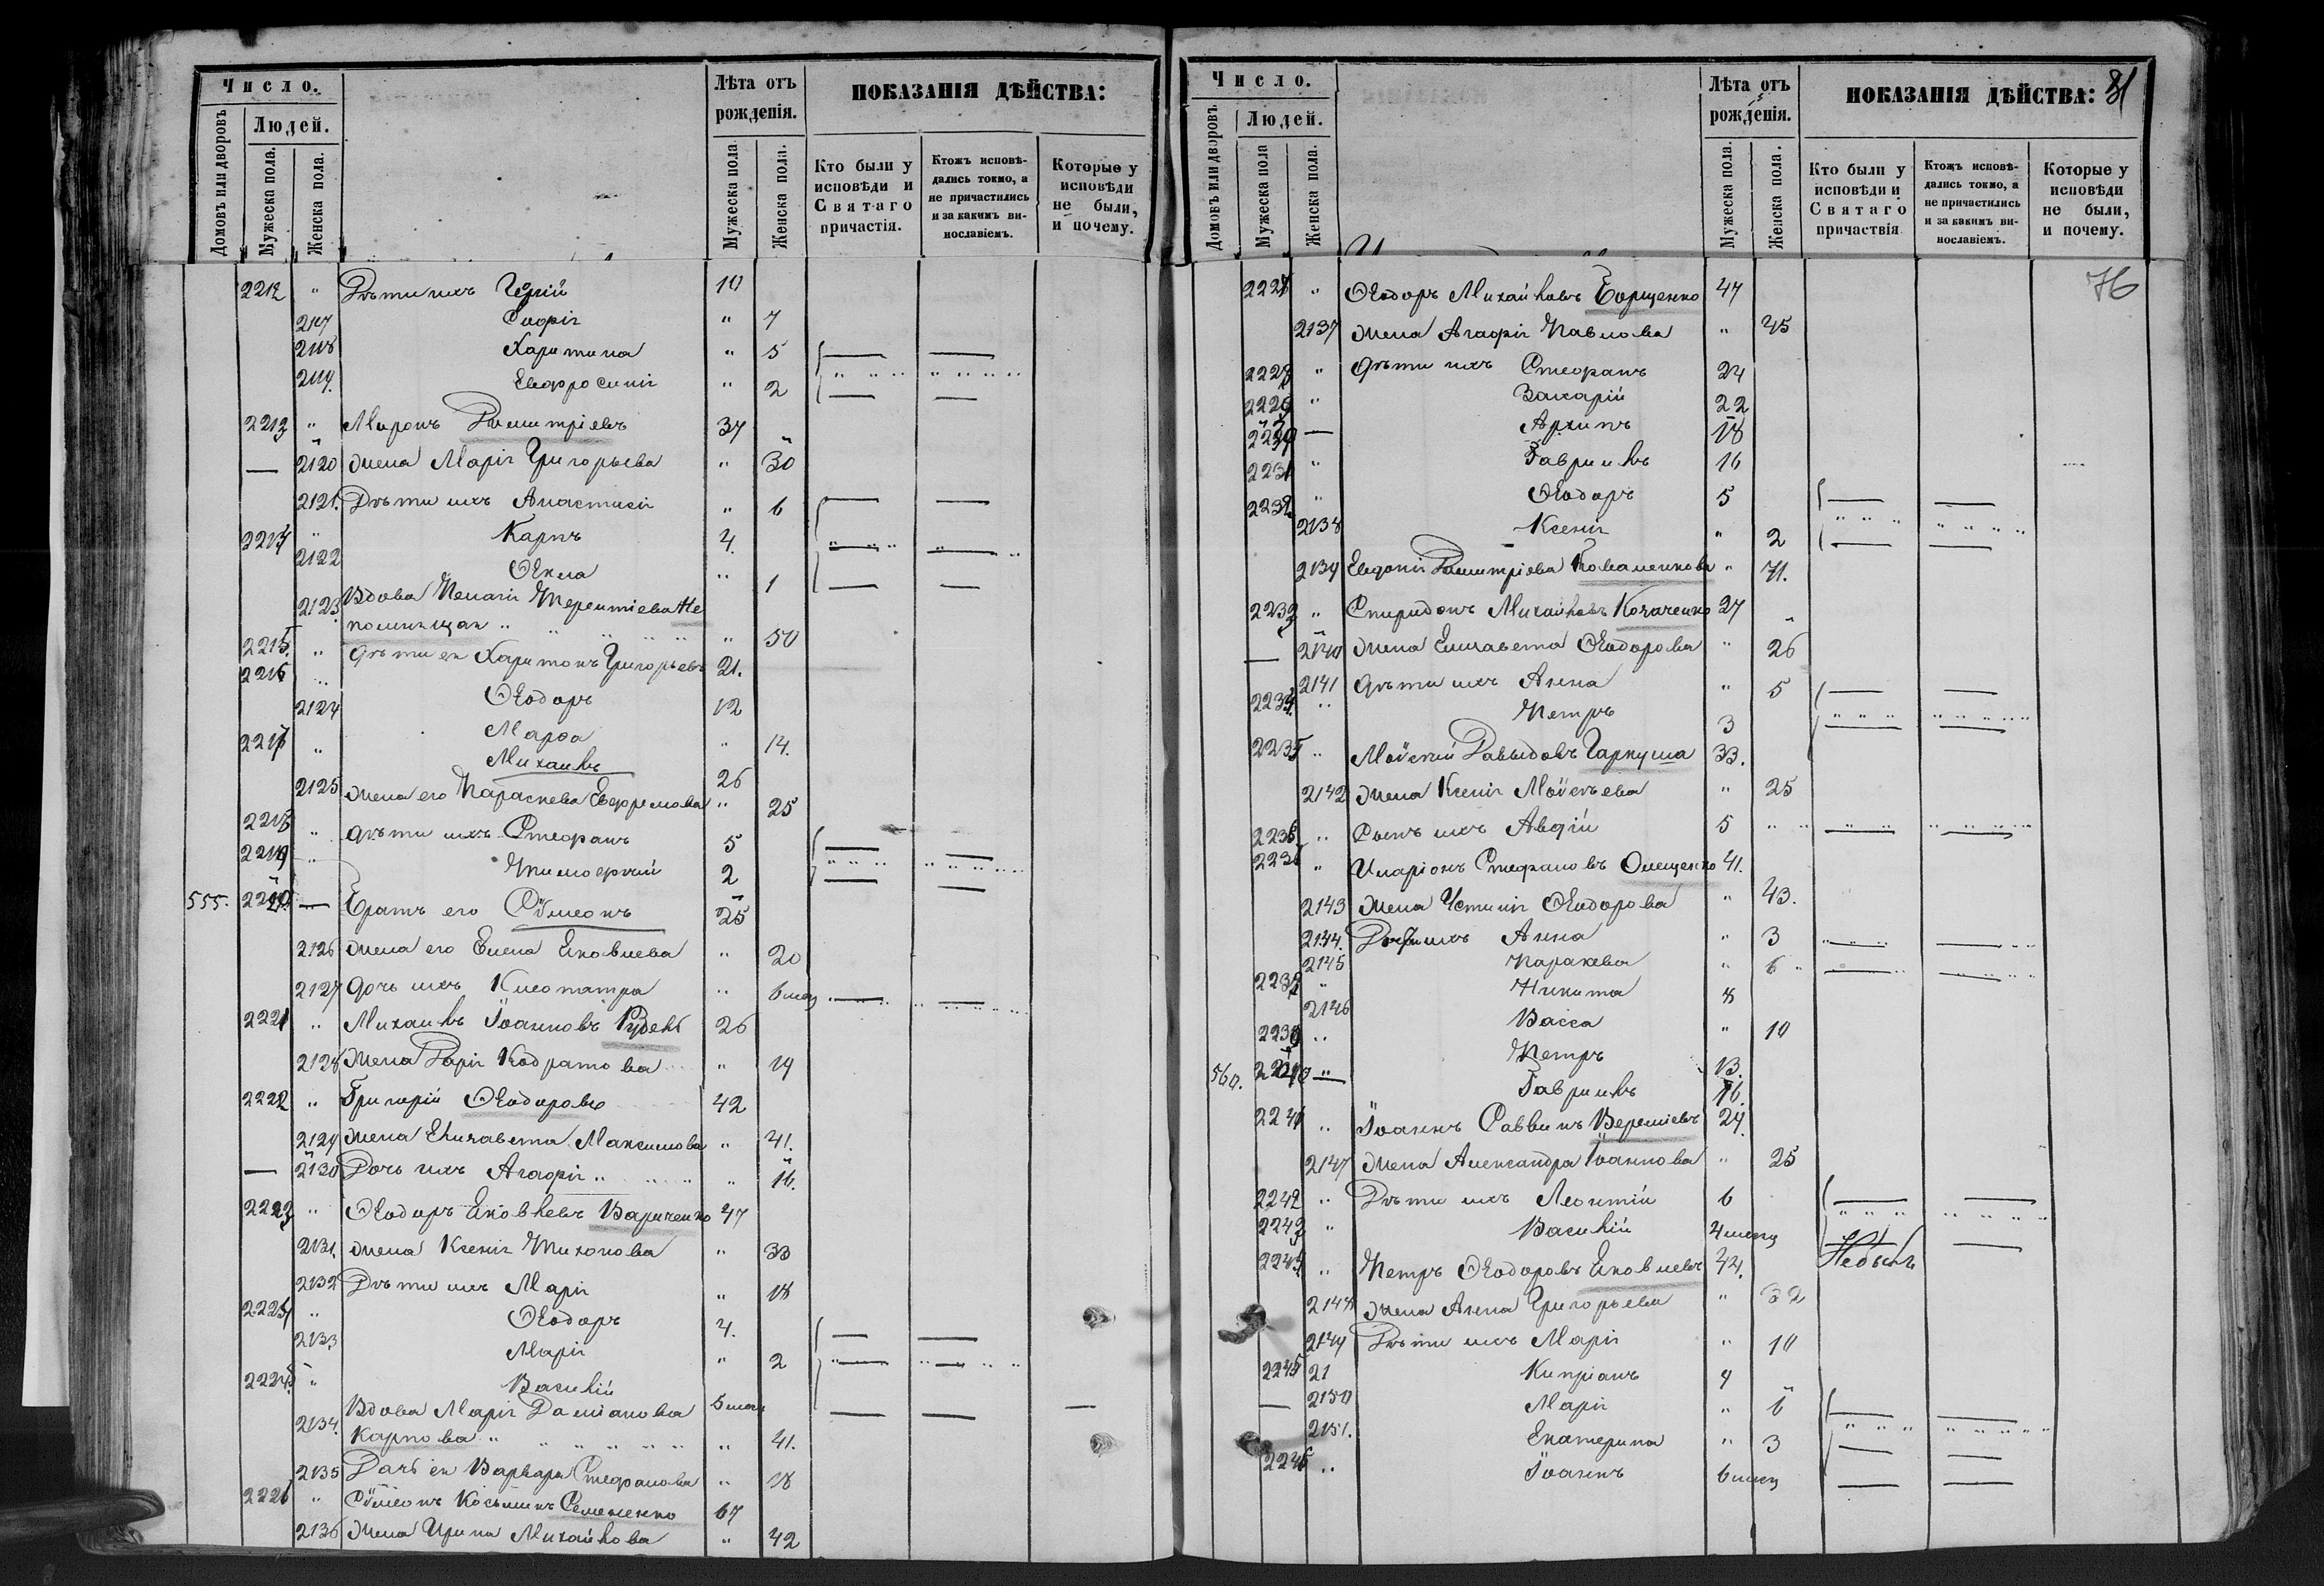 Число.
Людей.
Домовъ или дворовъ
Мужеска пола.
Женска пола.
Лѣта отъ рожденія.
Мужеска пола
Женска пола.
ПОКАЗАНІЯ ДѢЙСТВА:
Кто были у исповѣди и Святаго причастія.
Ктожъ исповѣдались токмо, а не причастились и за какимъ винославіемъ.
Которые у исповѣди не были, и почему.
2212 " Дѣти ихъ 10
2117 Софія " 7
2118 Харитина " 5
2119. Евфросинія " 2
2213 " Миронъ Димитріевъ 37 "
— 2120 жена Марія Григорьева " 30
2121. Дѣти ихъ Анастасія " 6
2214 " Карпъ 4.
2122 Ѳекла " 1
2123. Вдова Пелагія Терентіева Не
помнящая " " " " " " 50
2215. " дѣти ея Харитонъ Григорьевъ 21.
2216 " Ѳеодоръ 12
2124 Марѳа " 14.
2217 " Михаилъ 26
2125 жена его Параскева Евфремова " 25
2218 " дѣти ихъ Стефанъ 5
2219 " Тимоѳей 2
555. 2220. — Братъ его Сѵмеонъ 25
2126 жена его Елена Яковлева " 20
2127 дочь ихъ Клеопатра " 6 мец
2221 " Михаилъ Іоанновъ Рудень 26
2128 жена Дарія Кодратова " 19
2222 " Григорій Ѳеодоровъ 42
2129 жена Елизавета Максимова " 41.
— 2130 Дочь ихъ Агафія " " 16.
2223 " Ѳеодоръ Яковлевъ Вариченко 47
2131. жена Ксенія Тихонова " 33
2132 Дѣти ихъ Марія " 18
2224 " Ѳеодоръ 4.
2133 Марія " 2
2225. " Василій 5 мец
2134. Вдова Марія Даміанова
Карпова " " " " " " 41.
2135 Дочь ея Варвара Стефанова " 18
2226 " Сѵмеонъ Косьминъ Семененко 67
2136 жена Ирина Михайлова " 42
Число.
Людей.
Домовъ или дворовъ
Мужеска пола
Женска пола.
Лѣта отъ рожденія.
Мужеска пола.
Женска пола.
ПОКАЗАНІЯ ДѢЙСТВА: 81
Кто были у исповѣди и Святаго причаствія
Ктожъ исповѣдались токмо, а не причастились и за какимъ винославіемъ.
Которые у исповѣди не были, и почему.
76
2227 " Ѳеодоръ Михайловъ Борщенко 47
2137 жена Агафія Павлова " 45
2228 " дѣти ихъ Стефанъ 24
2229 " Захарій 22
2230 — Архипъ 18
2231 " Гавріилъ 16
2232. " Ѳеодоръ 5
2138 Ксенія " 2
2139 Евдокія Димитріева Коваленкова " 71.
2233 " Спиридонъ Михайловъ Козаченко 27
— 2140 жена Елизавета Ѳеодорова " 26
2141 дѣти ихъ Анна " 5
2234. " Петръ 3
2235 " Моисей Давыдовъ Гаркуша 33.
2142 жена Ксенія Моисеева " 25
2236 " Сынъ ихъ Авдій 5
2237 " Иларіонъ Стефановъ Онещенко 41.
2143 жена Устинія Ѳеодорова " 43.
2144. ихъ Анна " 3
2145 Параскева " 6
2238 " Никита 8
2146 Васса " 10
2239 " Петръ 13.
560. 2240 — Гавріилъ 16.
2241 " Іоаннъ Саввинъ Веремѣевъ 24.
2147 жена Александра Іоаннова " 25
2242 " Дѣти ихъ Леонтій 6
2243 " Василій 4 мец
2244. " Петръ Ѳеодоровъ Яковлевъ 42. Небылъ
2148 жена Анна Григорьева " 32
2149 Дѣти ихъ Марія " 10
2245 21 Кипріанъ 9
— 2150 Марія " 6
2151. Екатерина " 3
2246 " Іоаннъ 6 мец